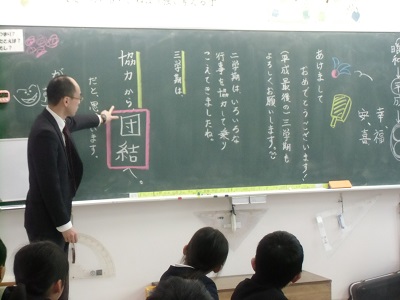 あけまして
おめでとうございます!
(平成最後の)三学期も
よろしくお願いします。
二学期は、いろいろな
行事を協力して乗り
こえてきましたね。
三学期は
協力から
団結へ。
だと、思います。
昭和
平成
幸福
安、喜